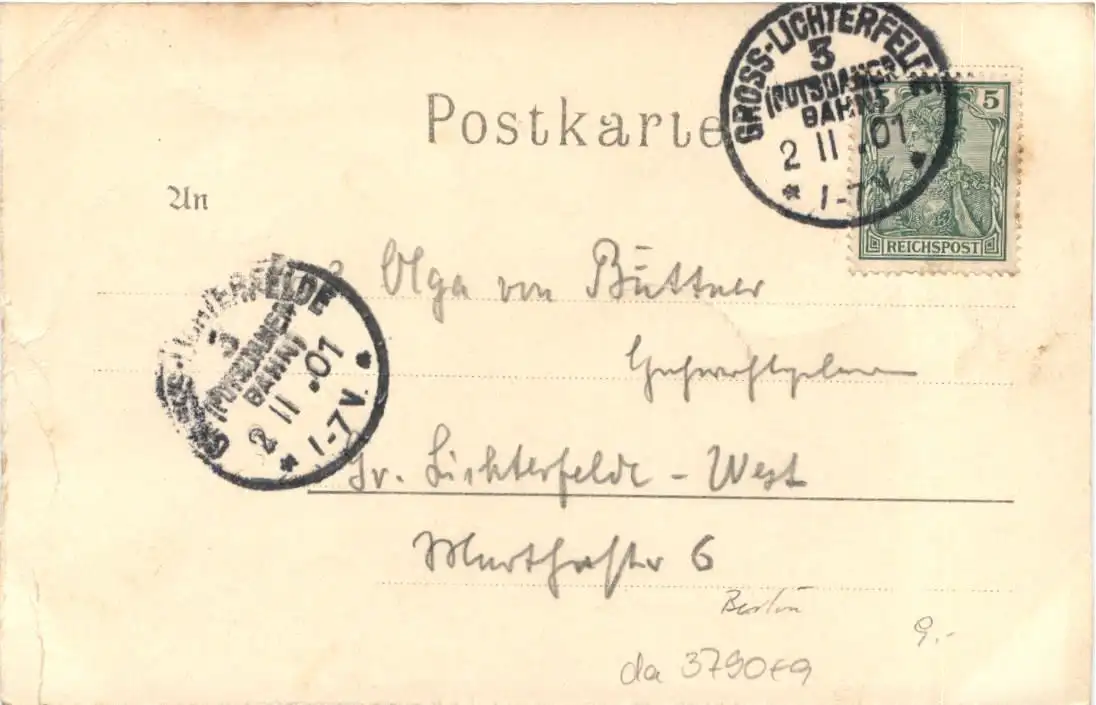 GROSS-LICHTERFELDE
3
(POTSDAMER
BAHN)
2 11 .01
* 1-7 V. *
5
REICHSPOST
Postkarte
An
Olga von Büttner
GROSS-LICHTERFELDE
3
(POTSDAMER
BAHN)
2 11 .01
* 1-7 V. *
Gr. Lichterfelde - West
Marthastr 6
Berlin
9.-
da 3790+9